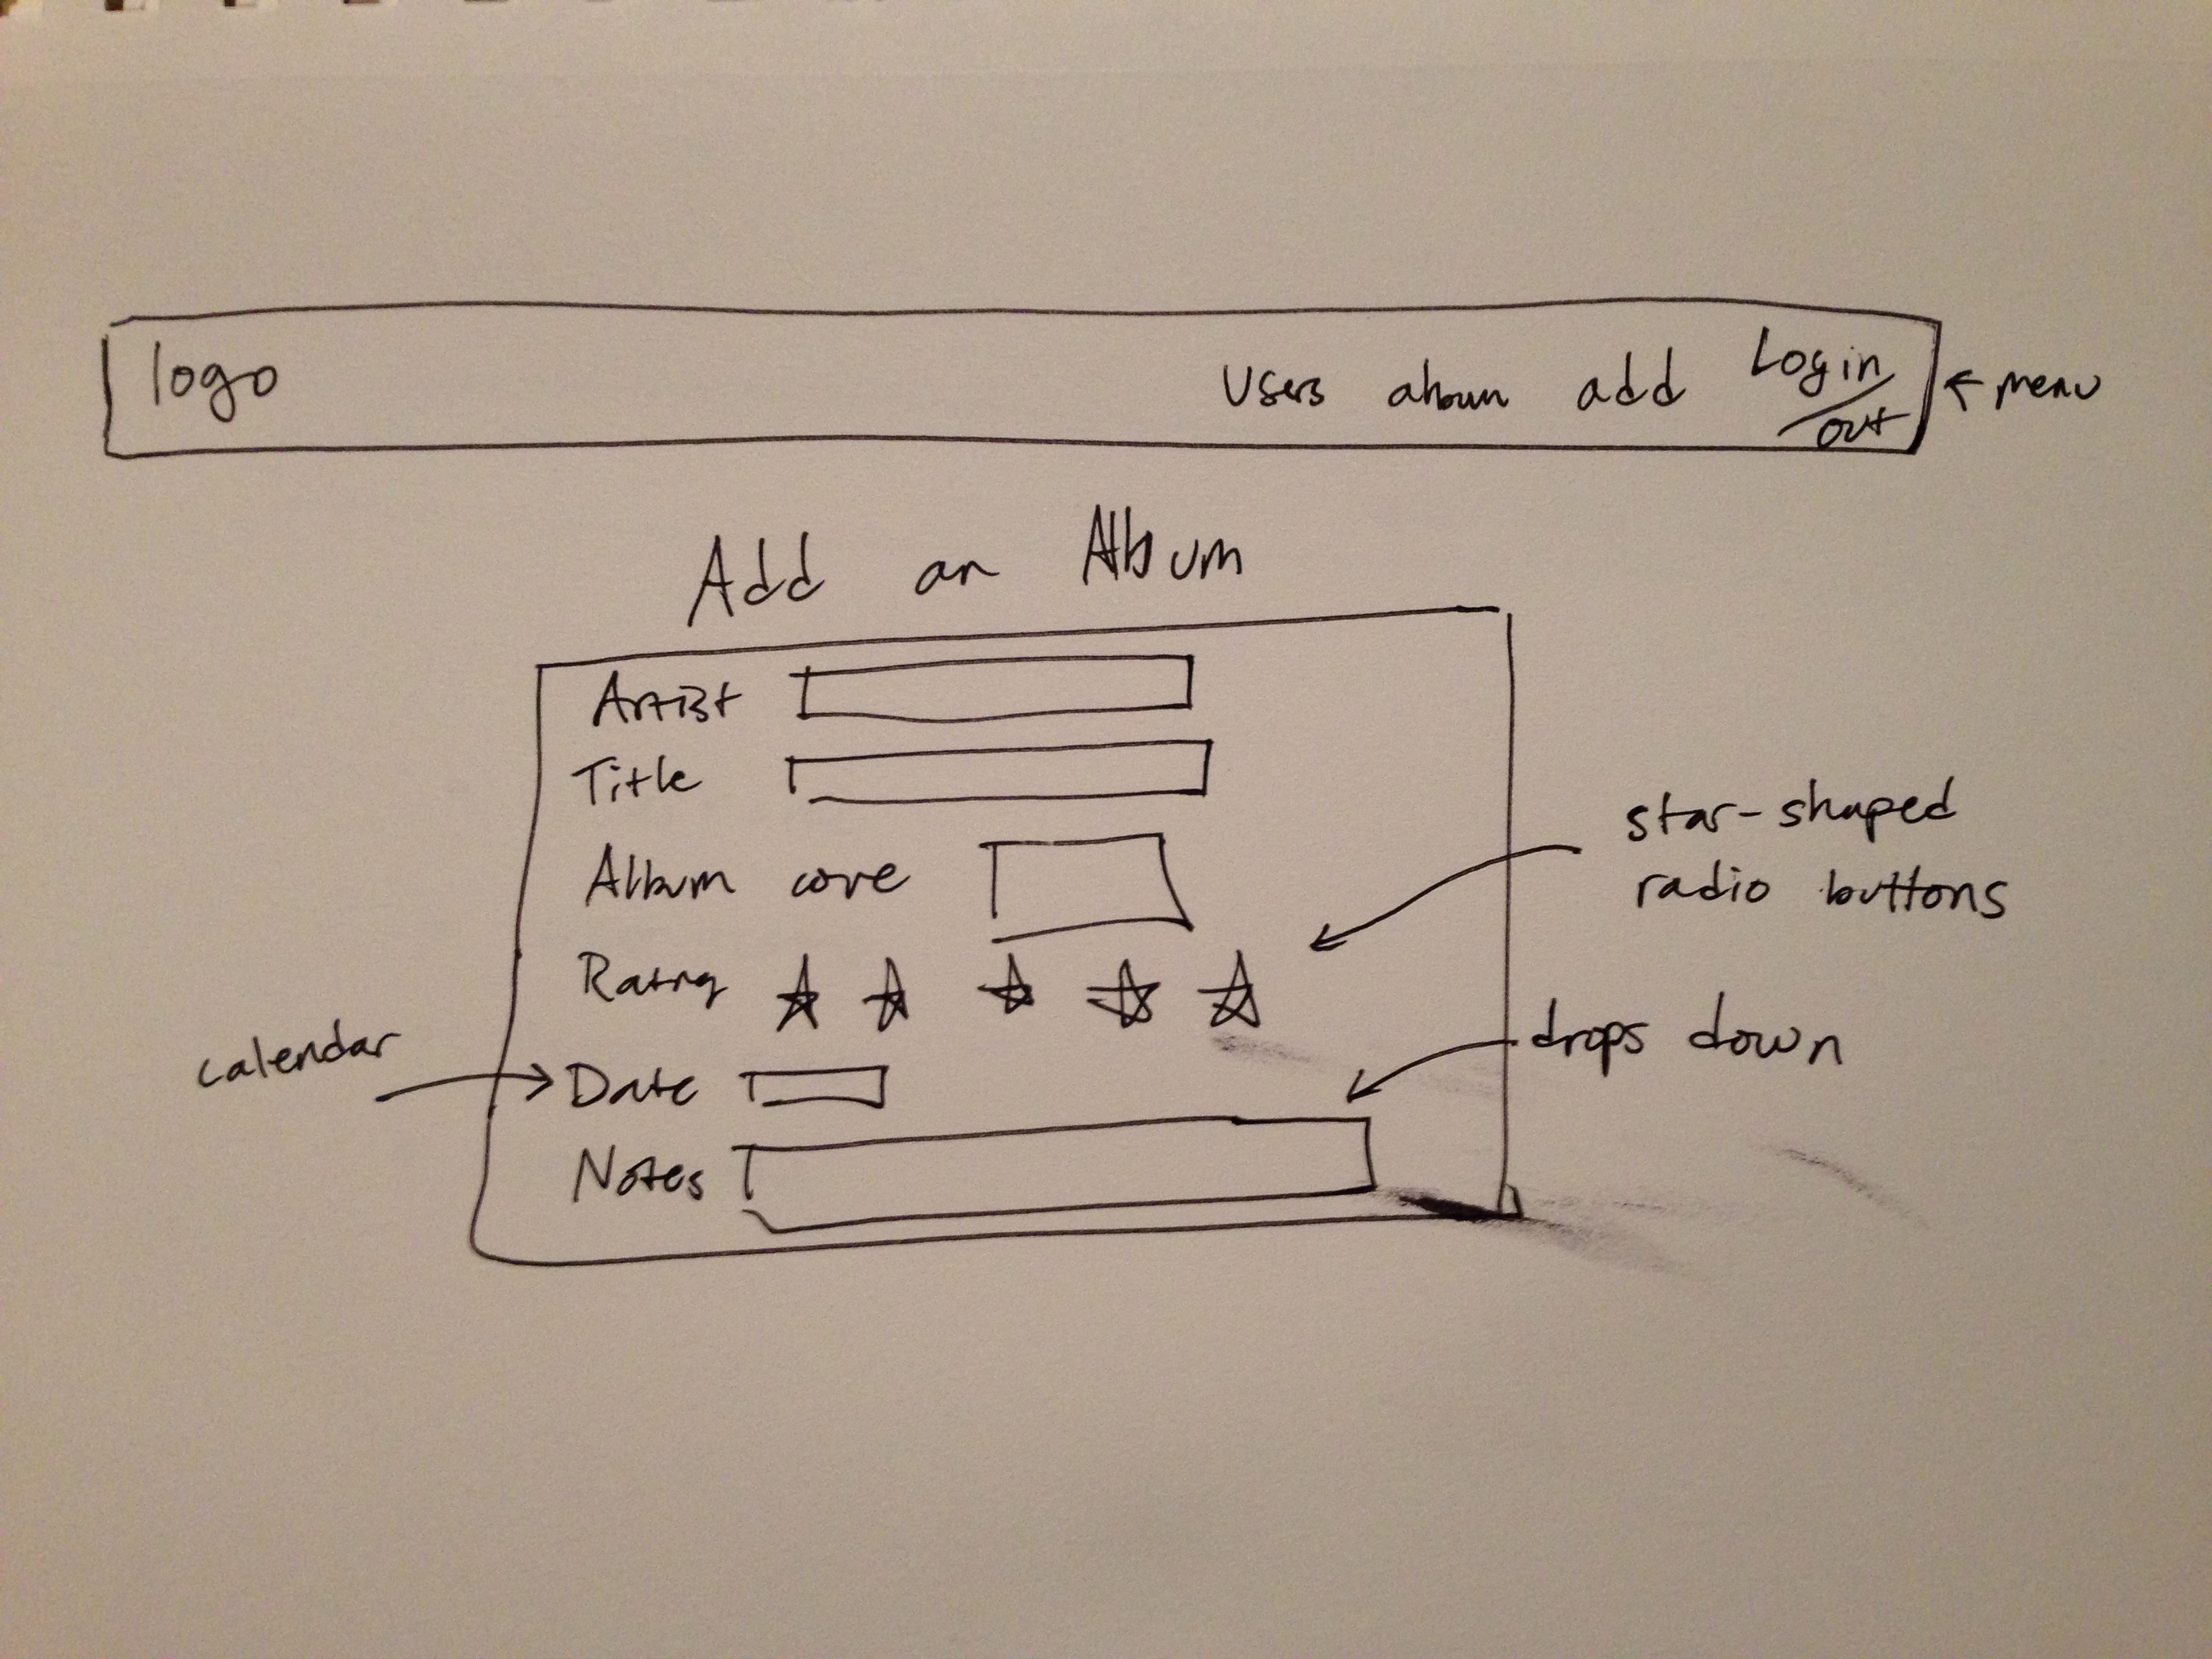 logo
Users album add Login/out
← menu
Add an Album
Artist
Title
Album cove
star-shaped
radio buttons
Rating
calendar
Date
drops down
Notes